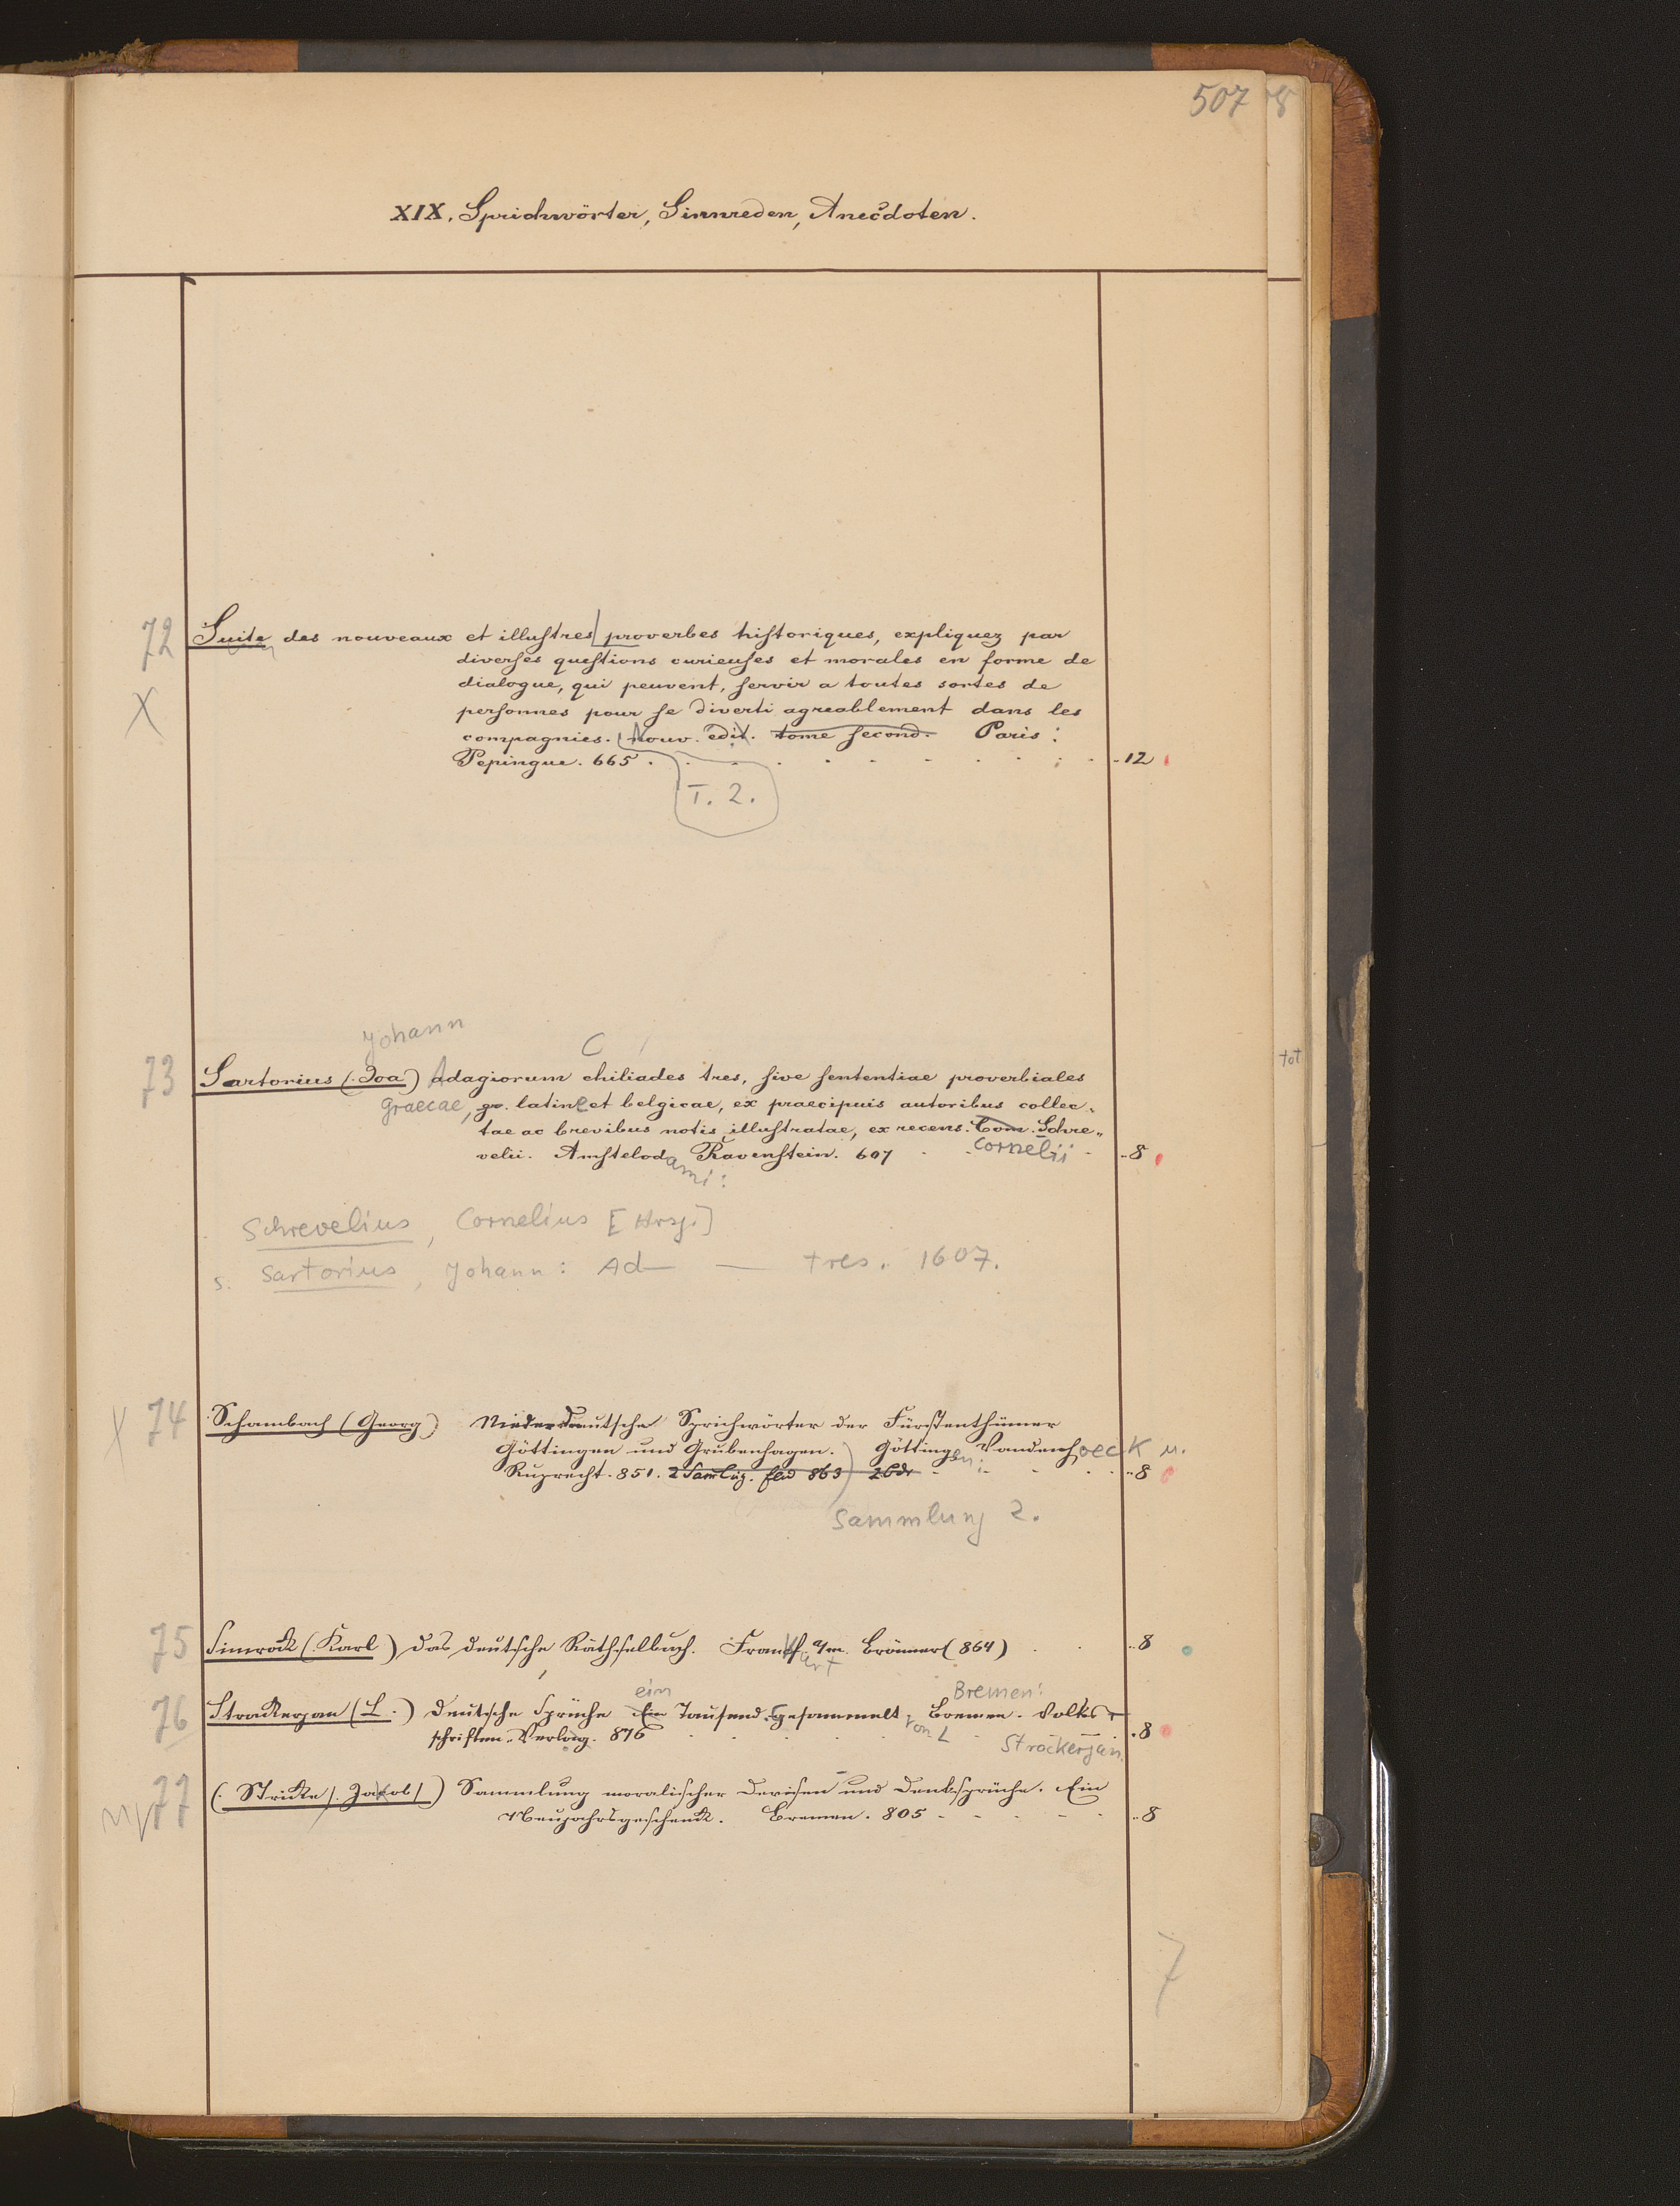 507
8
XIX. Sprichwörter, Sinnreden, Anecdoten.
72 Suite des nouveaux et illustres proverbes historiques, expliquez par
diverses questions curieuses et morales en forme de
X dialogue, qui peuvent, servir a toutes sortes de
personnes pour se diverti agreablement dans les
compagnies. Nouv. edit. tome second. Paris:
Pepingue. 665 . . . . . . . . . 12
T. 2.
Johann C
73 Sartorius (Joa) Adagiorum chiliades tres, sive sententiae proverbiales
Graecae, gr. latine et belgicae, ex praecipuis autoribus collec-
tae ac brevibus notis illustratae, ex recens. Corn. Schre-
velii. Amstelod. Ravenstein. 607 Cornelii 8
ami:
Schrevelius, Cornelius [Hrsg.]
s. Sartorius, Johann: Ad— — tres. 1607.
tot
X 74 Schambach (Georg) Niederdeutsche Sprichwörter der Fürstenthümer
Göttingen und Grubenhagen. Göttingen: Vandenhoeck u.
Ruprecht. 851. 2 Samlg. 863 2 Bde 8
Sammlung 2.
75 Simrock (Karl) Das deutsche Räthselbuch. Frankf. a/m. Brönner (864) 8
urt
ein Bremen:
76 Strackerjan (L.) Deutsche Sprüche Ein Tausend. Gesammelt. Bremen. Volks-
schriften-Verlag. 876 von L Strackerjan. 8
77 (Stricke / Jacob /) Sammlung moralischer Devisen und Denksprüche. Ein
Neujahrsgeschenk. Bremen. 805 8
7